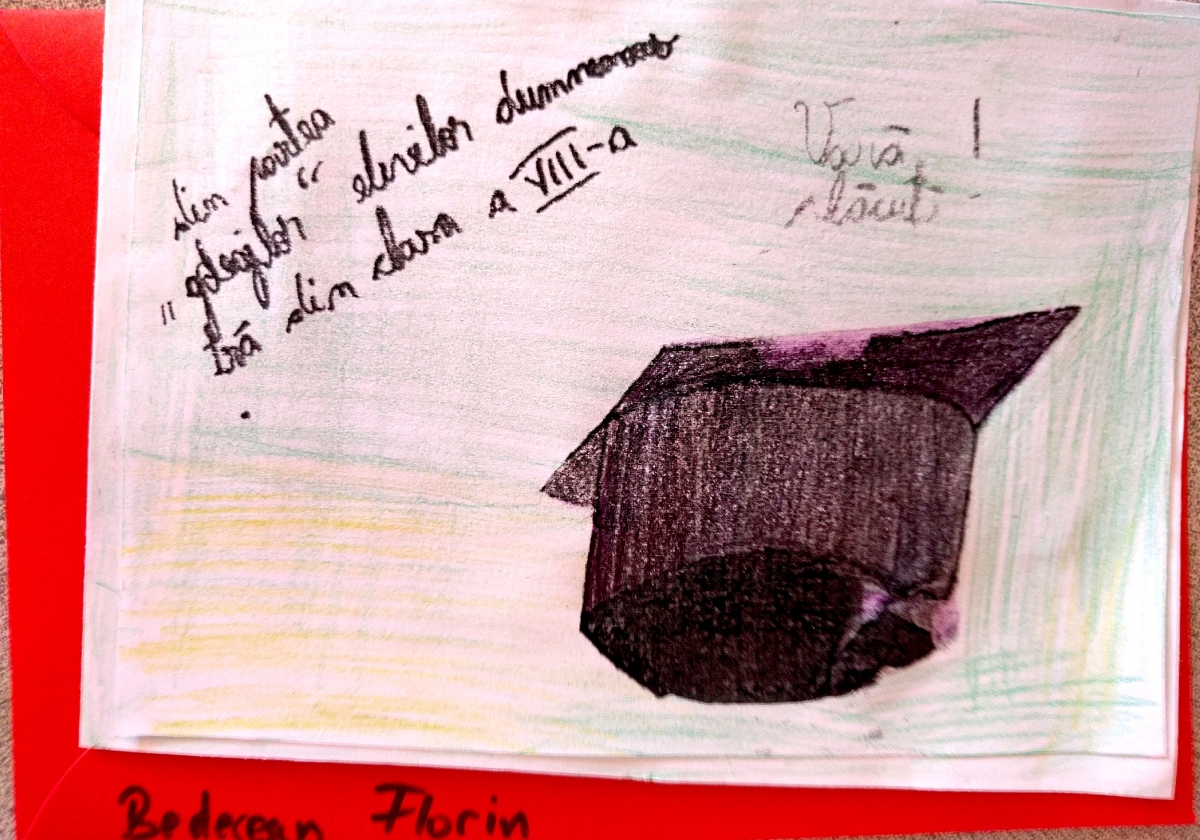 din partea
„dragilor“ elevilor dumneavoas
tră din clasa a VIII-a
.
Vară !
plăcută
Bedecean Florin